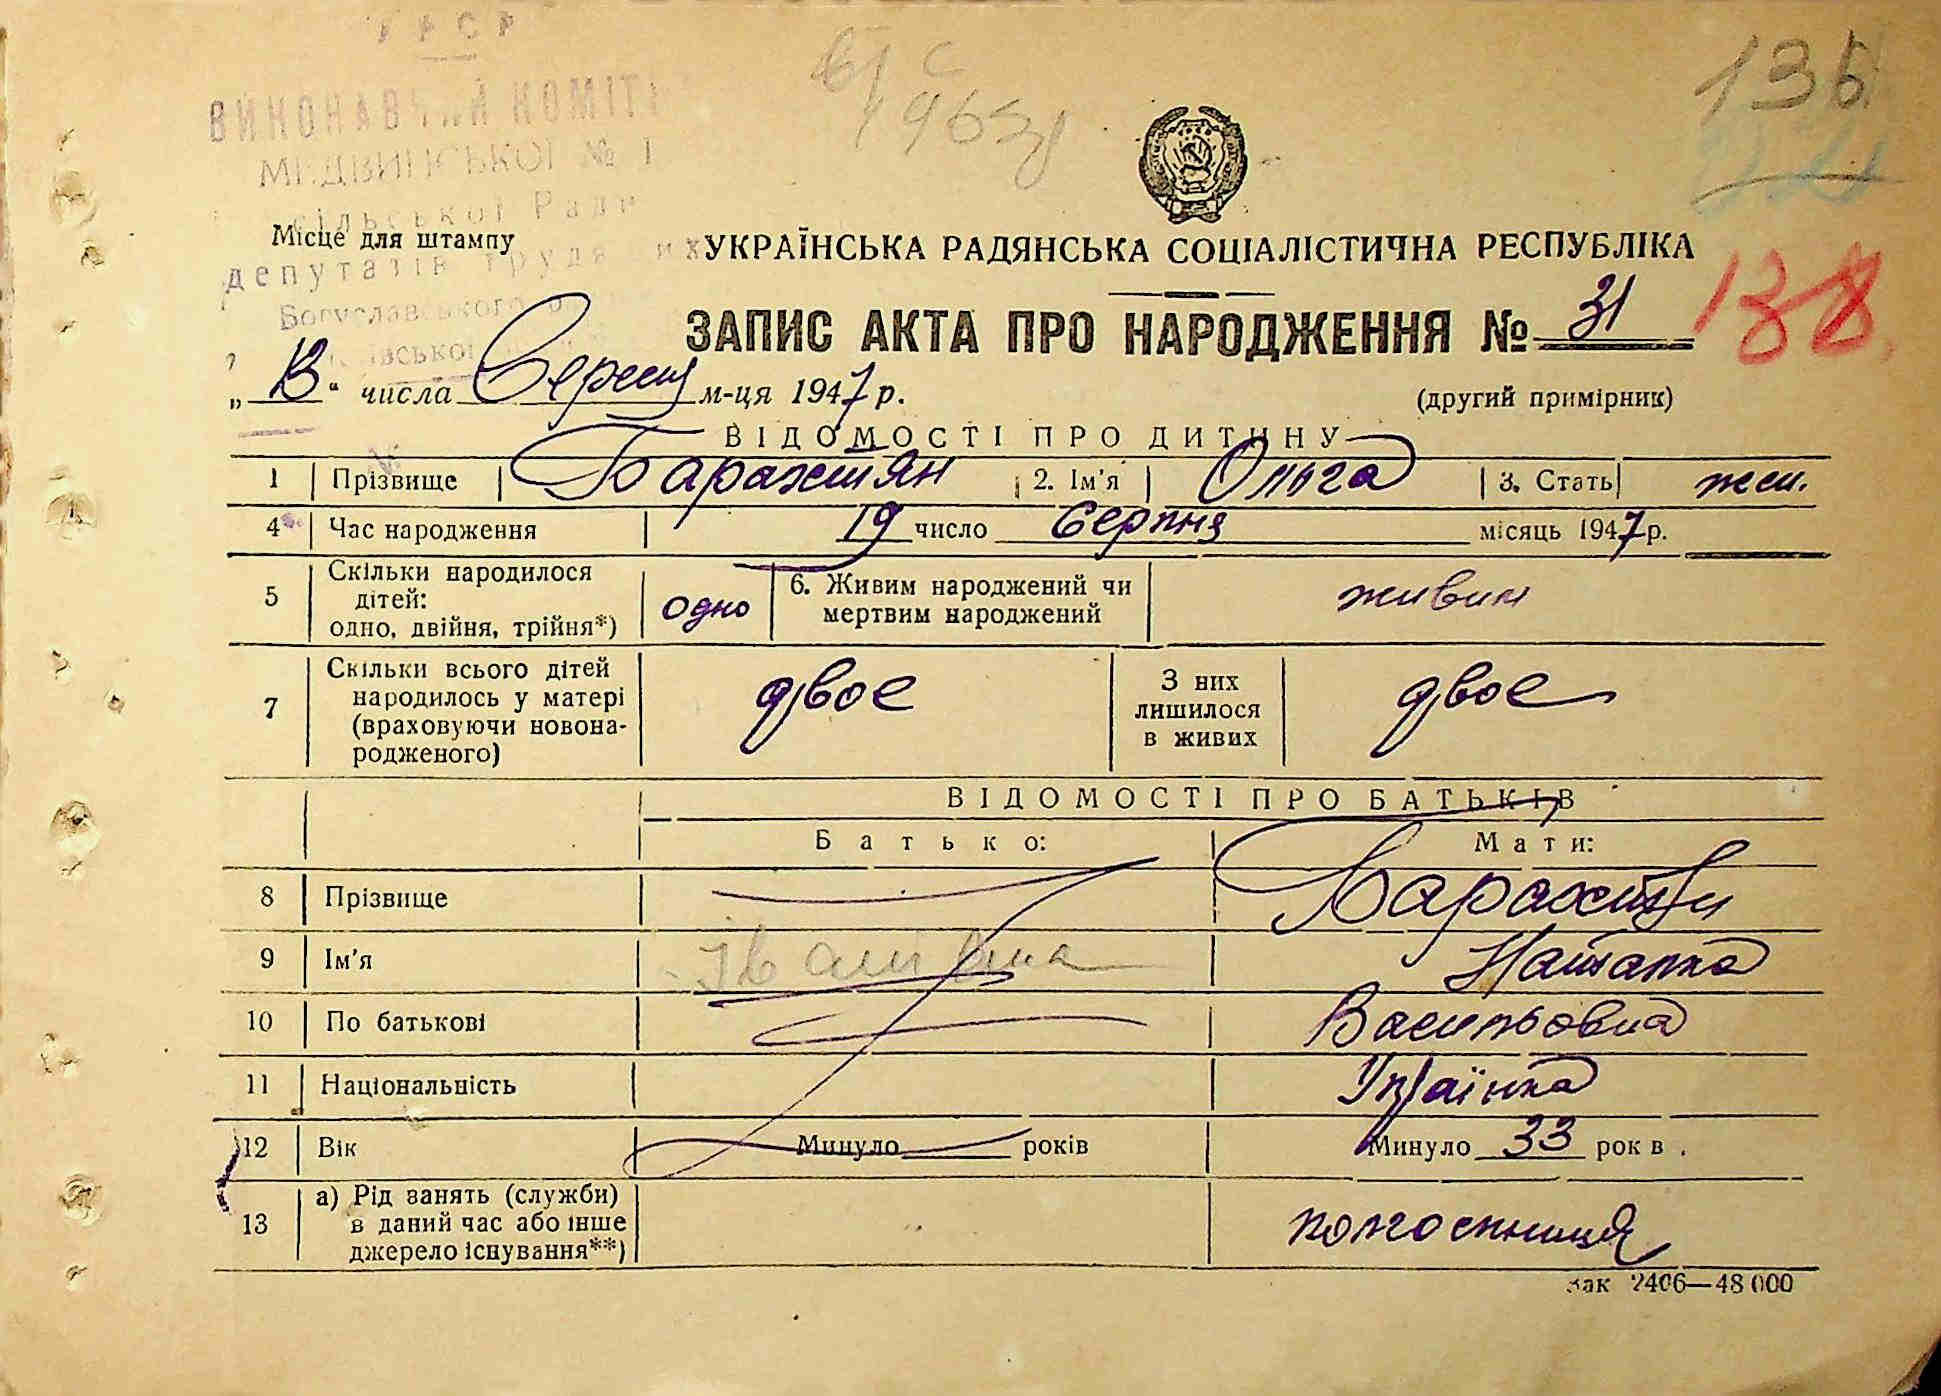 УРСР
ВИКОНАВЧИЙ КОМІТЕ
МЕДВИНСЬКОЇ № 1
сільської Ради
депутатів трудящих
Богуславського
Київської
вј с
1963р
135
22
138
Місце для штампу
УКРАЇНСЬКА РАДЯНСЬКА СОЦІАЛІСТИЧНА РЕСПУБЛІКА
ЗАПИС АКТА ПРО НАРОДЖЕННЯ № 31
„ 13 “ числа Вересня м-ця 1947 р.
(другий примірник)
ВІДОМОСТІ ПРО ДИТИНУ
1 Прізвище Барахтян 2. Ім'я Ольга 3. Стать жен.
4 Час народження 19 число Серпня місяць 1947 р.
5 Скільки народилося дітей: одно, двійня, трійня*) одно 6. Живим народжений чи мертвим народжений живим
7 Скільки всього дітей народилось у матері (враховуючи новонародженого) двоє З них лишилося в живих двоє
ВІДОМОСТІ ПРО БАТЬКІВ
Батько: Мати:
8 Прізвище Барахтян
9 Ім'я Івановна Наталка
10 По батькові Васильовна
11 Національність Українка
12 Вік Минуло років Минуло 33 років.
13 а) Рід занять (служби) в даний час або інше джерело існування**) колгоспниця
Зак 2406—48 000